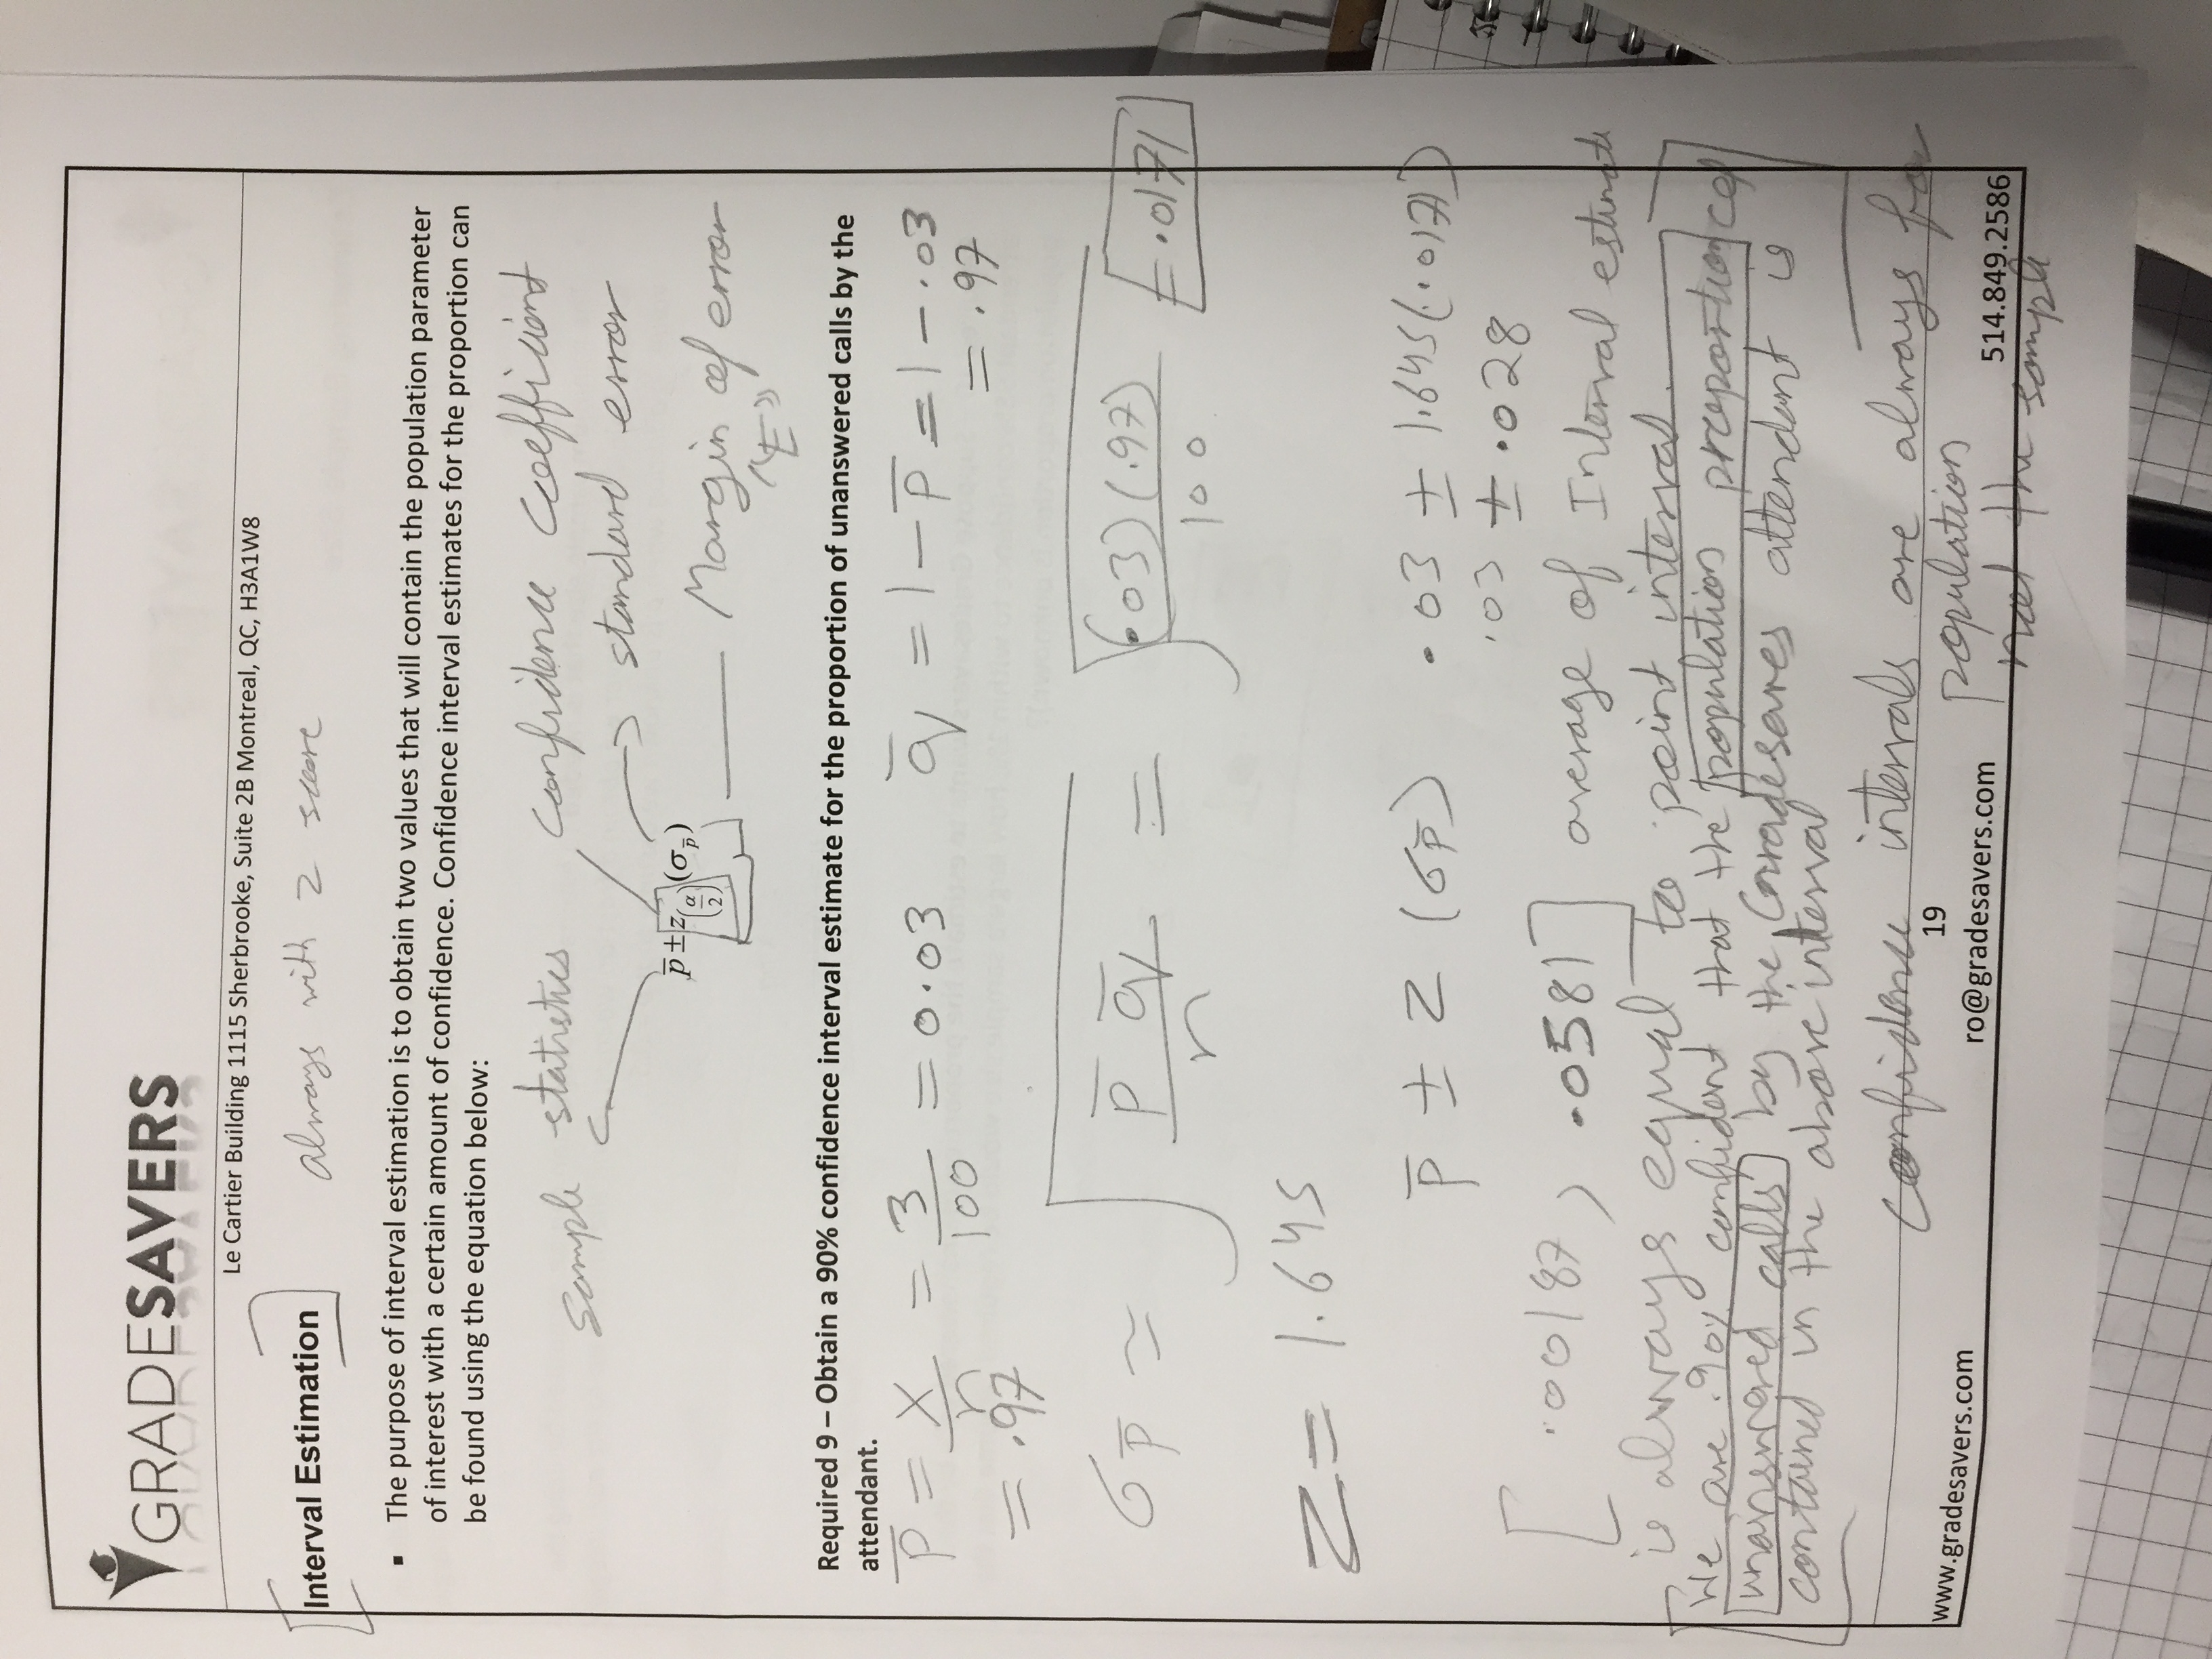 GRADESAVERS
Le Cartier Building 1115 Sherbrooke, Suite 2B Montreal, QC, H3A1W8
Interval Estimation
always with z score
▪ The purpose of interval estimation is to obtain two values that will contain the population parameter
of interest with a certain amount of confidence. Confidence interval estimates for the proportion can
be found using the equation below:
sample statistics confidence coefficient
p̄ ± z(α/2) (σp̄) standard error
Margin of error
"E"
Required 9 – Obtain a 90% confidence interval estimate for the proportion of unanswered calls by the
attendant.
p̄ = x/n = 3/100 = 0.03 q̄ = 1 - p̄ = 1 - .03
= .97 = .97
σp̄ = √(p̄ q̄ / n) = √((.03)(.97)/100) = .0171
Z = 1.645
p̄ ± z (σp̄) .03 ± 1.645(.0171)
.03 ± .028
[.00187, .0581] average of Interval estimate
is always equal to point interval
We are 90% confident that the population proportion of
unanswered calls by the Gradesavers attendant is
contained in the above interval
confidence intervals are always for
population
not the sample
19
www.gradesavers.com ro@gradesavers.com 514.849.2586